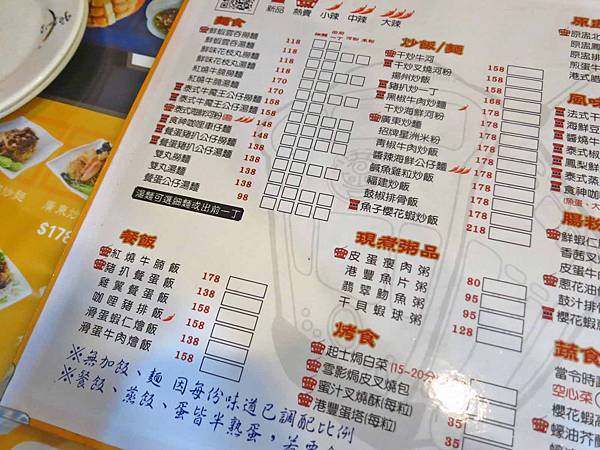 新品 熱賣 小辣 中辣 大辣
麵食
鮮蝦雲吞撈麵 118
鮮蝦雲吞湯麵 118
鮮味花枝丸撈麵 118
鮮味花枝丸湯麵 118
紅燒牛腩撈麵 170
紅燒牛腩湯麵 170
泰式牛魔王公仔撈麵 168
泰式牛魔王公仔湯麵 168
泰式海鮮河粉 148
食神咖哩車仔麵 148
餐蛋豬扒公仔撈麵 138
餐蛋豬扒公仔湯麵 138
雙丸撈麵 138
雙丸湯麵 138
餐蛋公仔湯麵 98
湯麵可選細麵或出前一丁
炒飯/麵
干炒牛河 158
干炒叉燒河粉 158
揚州炒飯 158
豬扒炒一丁 158
黑椒牛肉炒麵 168
干炒海鮮河粉 168
廣東炒麵 158
招牌星洲米粉 158
青椒牛肉炒飯 158
醬辣海鮮公仔麵 158
鹹魚雞粒炒飯 158
福建炒飯 158
豉椒排骨飯 158
魚子櫻花蝦炒飯 218
餐飯
紅燒牛腩飯 178
豬扒餐蛋飯 138
雞翼餐蛋飯 138
咖哩豬排飯 158
滑蛋蝦仁燴飯 158
滑蛋牛肉燴飯 158
現煮粥品
皮蛋瘦肉粥 80
港豐魚片粥 95
翡翠魩魚粥 95
干貝蝦球粥 128
烤食
起士焗白菜(15~20分)
雪影焗皮叉燒包
蜜汁叉燒酥(每粒) 35
港豐蛋塔(每粒) 35
※無加飯、麵 因每份味道已調配比例
※餐飯、蒸飯、蛋皆半熟蛋,若需全
廣東炒
$178
炒麵
風味
泰式
食神咖
腸粉
鮮蝦仁
香茜叉
皮蛋牛
蔥花油
豉汁排
櫻花蝦
蔬食
當令時
空心菜
櫻花蝦高
蠔油芥蘭